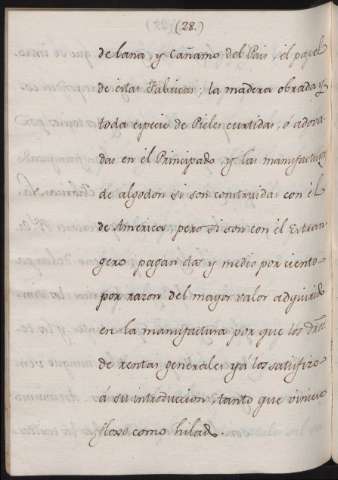 (28.)
de lana, y Cañamo del Pais, él papel
de éstas Fabricas; la madera obrada y
toda especie de Pieles curtidas, ó adova-
das en él Principado, y las manufacturas
de algodon si son construidas con él
de America, pero si son con él Extran-
gero pagan dos y medio por ciento
por razon del mayor valor adquirido
en la manufactura por que los dros
de rentas generales yá los satisfizo
á su introduccion, tanto que viniese
floxo como hilado.